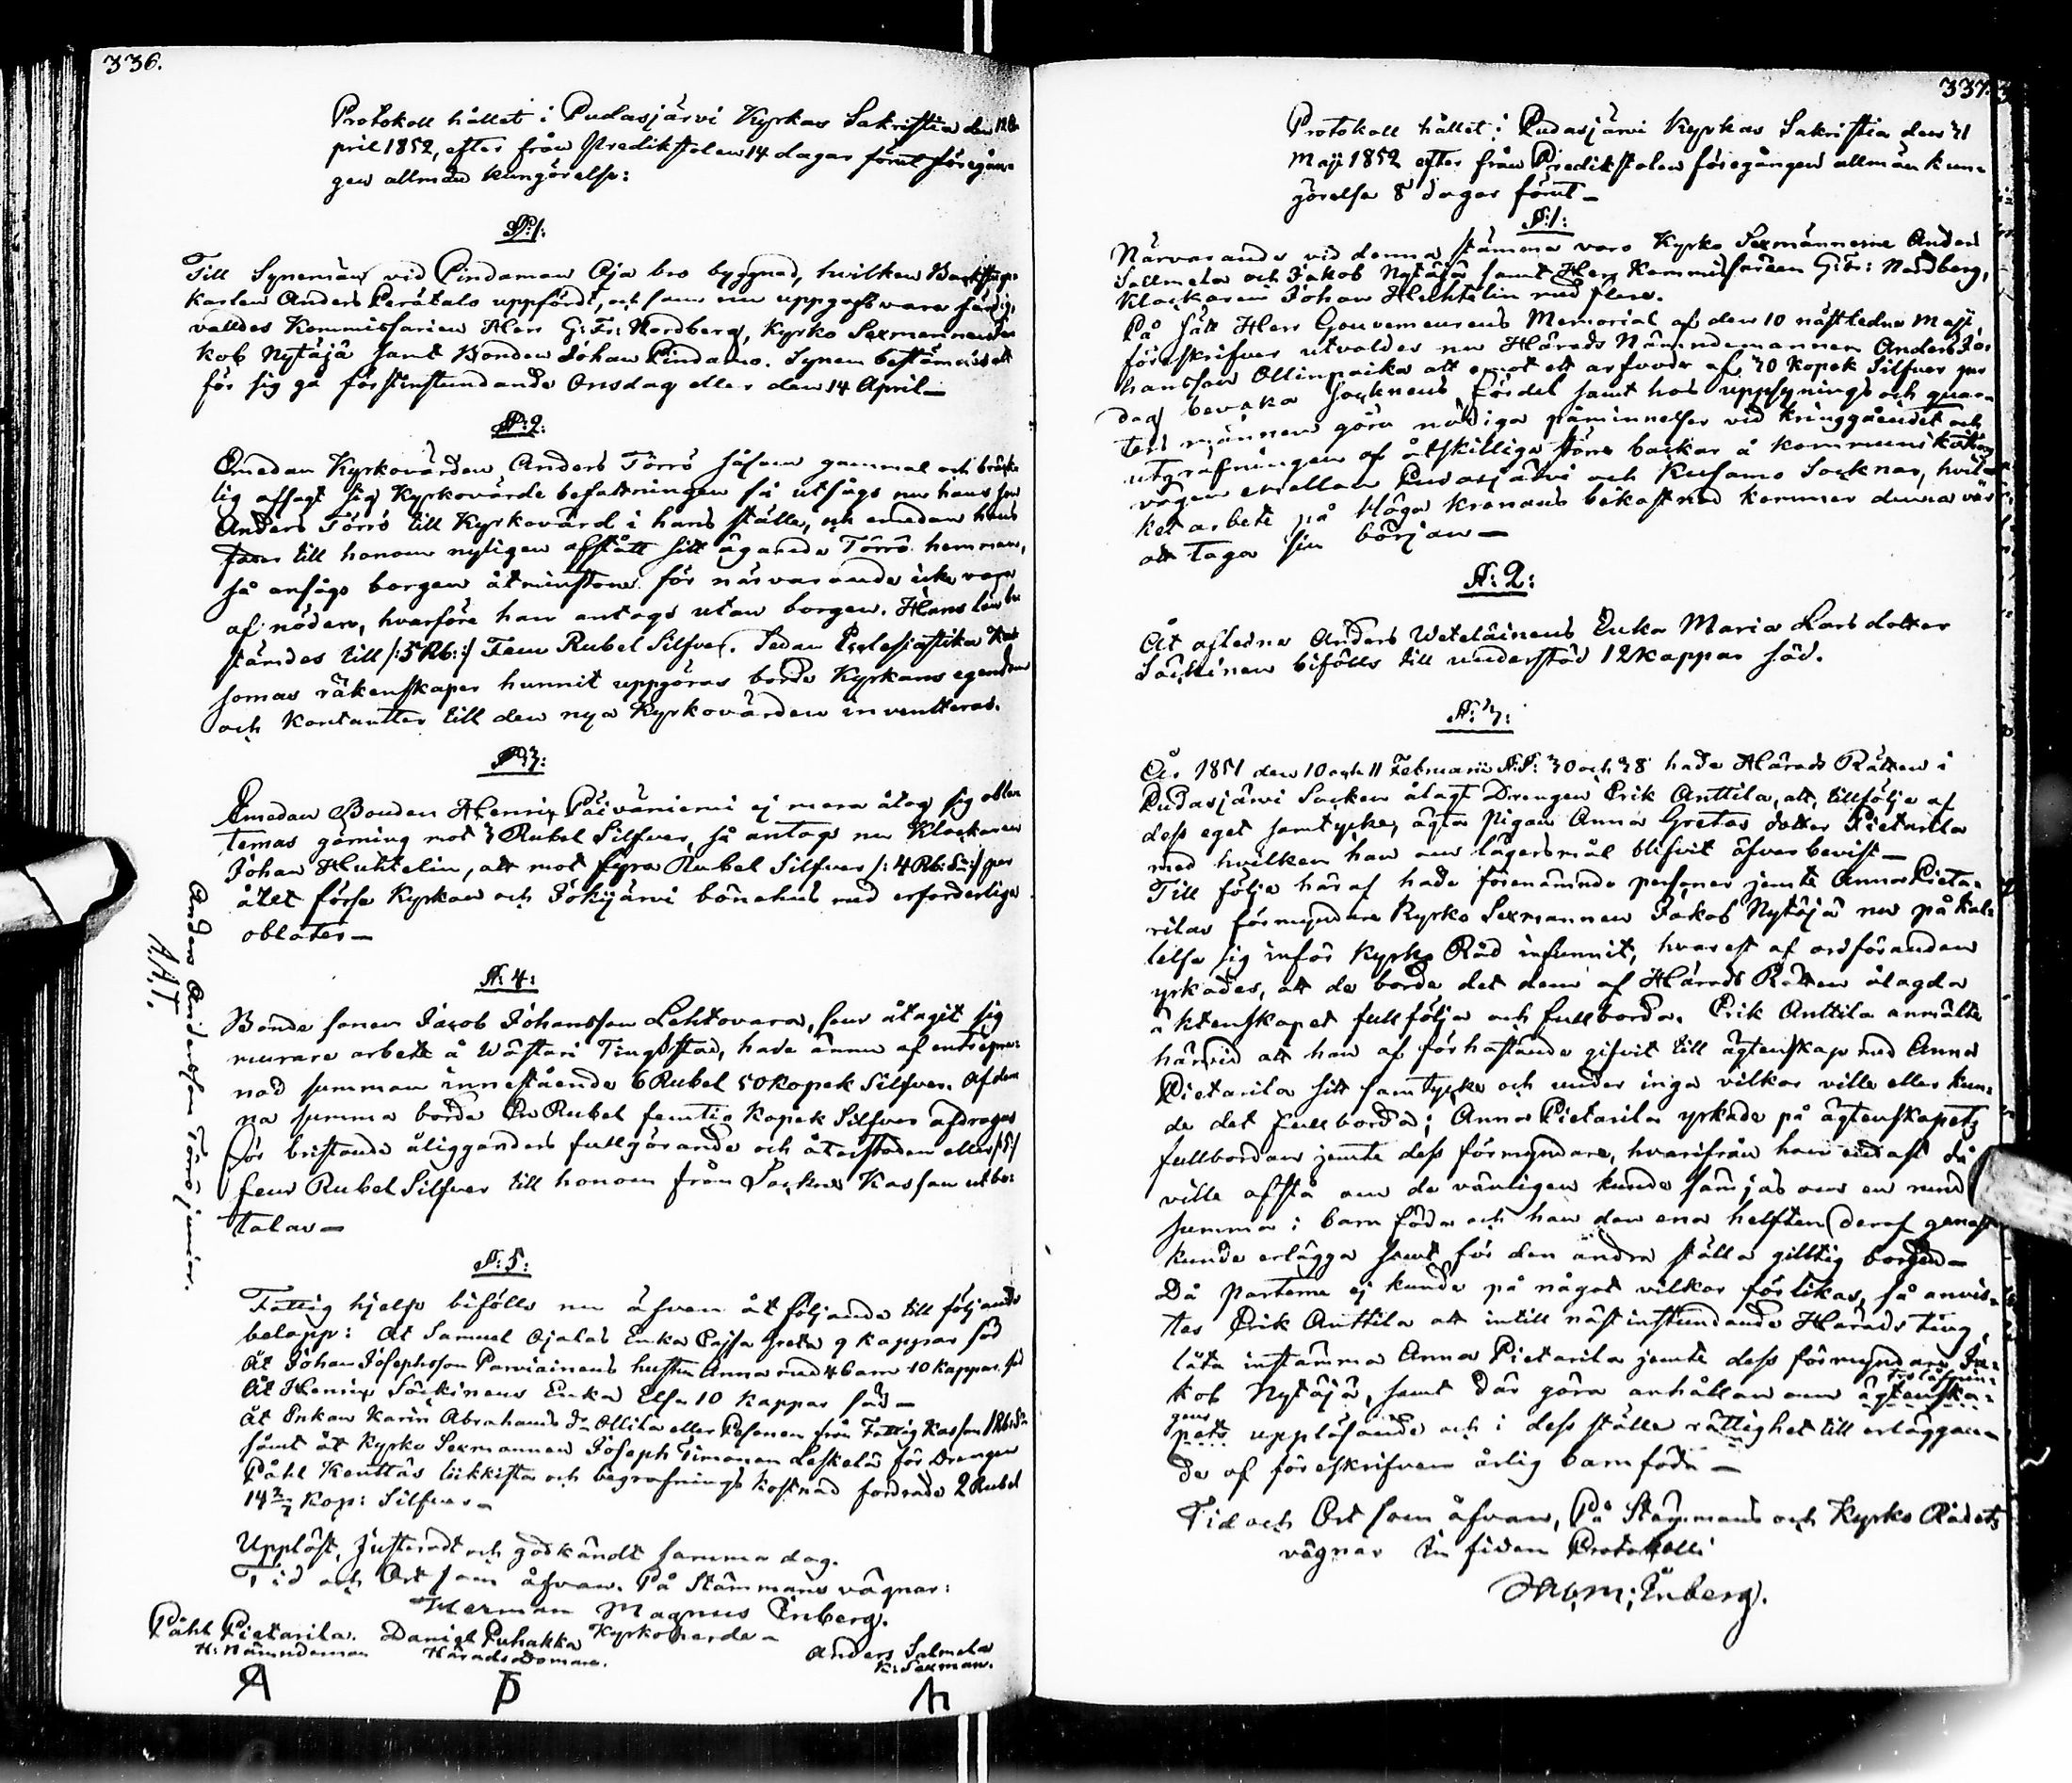 336.
Protokoll hållet i Pudasjärvi Kyrkas Sakristia den 12 A
pril 1852, efter från Predikstolen 14 dagar förut föregån-
gen allmän kungörelse:
§:1:
Till Synemän vid Pindaman Oja bro byggnad, hvilken
karlen Anders Perätalo uppfördt, och som nu uppgafs vara färdig,
valldes Kommissarien Herr G: Fr: Nordberg, Kyrko Sexmannen Ja
kob Nytäjä samt Bonden Johan Pindamo. Synen bestämdes att
för sig gå förstinstundande Onsdag eller den 14 April—
§:2:
Emedan Kyrkovärden Anders Törrö såsom gammal och bräck
lig afsagt sig Kyrkovärde befattningen så utsågs nu hans son
Anders Törrö till Kyrkovärd i hans ställe, och emedan hans
fader till honom nyligen afstått sitt ägande Törrö hemman,
så ansågs borgen åtminstone för närvarande icke vara
af nöden, hvarföre han antogs utan borgen. Hans lön be
stämdes till /:5 Rb:/ Fem Rubel Silfver. Sedan Ecclesiastika Kas
sornas räkenskaper hunnit uppgöras borde Kyrkans egendom
och Kontanter till den nya Kyrkovärden inventeras.
§:3:
Emedan Bonden Henric Päiväniemi ej mera åtog sig obla
ternas görning mot 3 Rubel Silfver, så antogs nu Klockaren
Johan Huhtelin, att mot fyra Rubel Silfver /:4 Rb: Sr:/ per
året förse Kyrkan och Jokijärvi bönehus med erforderliga
oblater—
§:4:
Bonde sonen Jacob Johansson Lehtovara, som åtagit sig
murare arbete å Wästari Tingsstad, hade ännu af entrepre-
nad summan innestående 6 Rubel 50 Kopek Silfver. Af den
na summa borde En Rubel femtio Kopek Silfver afdragas
för bristande åliggandets fullgörande och återstoden eller /:5:/
fem Rubel Silfver till honom från Socknens Kassan utbe-
talas—
§:5:
Fattig hjelp bifölls nu äfven åt följande till följande
belopp: Åt Samuel Ojalas Enka Cajsa Greta 9 kappar säd
Åt Johan Josephsson Parviainens hustru Anna med 4 barn 10 kappar säd
Åt Henric Säckinens Enka Elsa 10 kappar säd—
Åt Enkan Karin Abrahams dr Ollila eller Pesonen från Fattig Kassan 1 Rb: Sr
samt åt Kyrko Sexmannen Joseph Timonen Leskelä för Drengen
Påhl Kenttäs likkista och begrafnings kostnad fordrade 2 Rubel
14 2/7 Kop: Silfver—
Uppläst, justeradt och godkändt samma dag.
Tid och Ort som åfvan. På Stämmans vägnar:
Herman Magnus Enberg.
Kyrkoherde—
Påhl Pietarila.
H: Nämndeman
Daniel Puhakka
Häradsdomare.
Anders Salmela
K: Sexman.
Anders Andersson Törrö junior.
A.A.T.
337.
Protokoll hållit i Pudasjärvi Kyrkas Sakristia den 31
Maji 1852 efter från Predikstolen föregången allmän kun-
görelse 8 dagar förut—
§:1:
Närvarande vid denna stämma voro Kyrko Sexmännerne Anders
Sallmela och Jakob Nytäjä samt Herr Kommissarien G: Fr: Nordberg,
Klockaren Johan Huhtelin med flere.
På sätt Herr Gouverneurens Memorial af den 10 nästledne Maji
föreskrifver utvaldes nu Härads Nämndemannen Anders Jo-
hansson Ollinpaika att emot ett arfvode af 30 Kopek Silfver per
dag bevaka Socknens fördel samt hos uppsynings och quar-
ters männen göra nödiga påminnelser vid kringgåendet och
utgrafningen af åtskilliga större backar å kommunikations
vägen emellan Pudasjärvi och Kusamo Socknar, hvil-
ket arbete på Höga Kronans bekostnad kommer denna vår
att taga sin början—
§:2:
Åt aflednе Anders Weteläinens Enka Maria Lars dotter
Säckinen bifölls till understöd 12 kappar säd.
§:3:
År 1851 den 10 och 11 Februarii §.§: 30 och 38 hade Härads Rätten i
Pudasjärvi Socken ålagt Drengen Erik Anttila, att, tillfölje af
dess eget samtycke, ägta pigan Anna Greta dotter Pietarila
med hvilken han om lägersmål blifvit öfverbevist—
Till följe häraf hade förenämnde personer jemte Anna Pieta-
rilas förmyndare Kyrko Sexmannen Jakob Nytäjä nu på kal-
lelse sig inför Kyrko Råd infunnit, hvarest af ordföranden
yrkades, att de borde det dem af Härads Rätten ålagda
äktenskapet fullfölja och fullborda. Erik Anttila anmälte
härvid att han af förhastande gifvit till ägtenskap med Anna
Pietarila sitt samtycke och under inga vilkor ville eller kun-
de det fullborda; Anna Pietarila yrkade på ägtenskapets
fullbordan jemte dess förmyndare, hvarifrån hon endast då
ville afstå om de vänligen kunde sämjas om en rund
summa i barn föda och han den ena helften deraf genast
kunde erlägga samt för den andra ställa gilltig borgen—
Då parterne ej kunde på något vilkor förlikas, så anvis-
tes Erik Anttila att intill nästinstundande Härads ting
låta instämma Anna Pietarila jemte dess förmyndare Ja-
kob Nytäjä, samt där göra anhållan om ägtenska-
pets upplösande och i dess ställe rättighet till erläggan-
de af föreskrifven årlig barnföda—
Tid och Ort som åfvan, På Stämmans och Kyrko Rådets
vägnar In fidem Protokolli
H: M: Enberg.